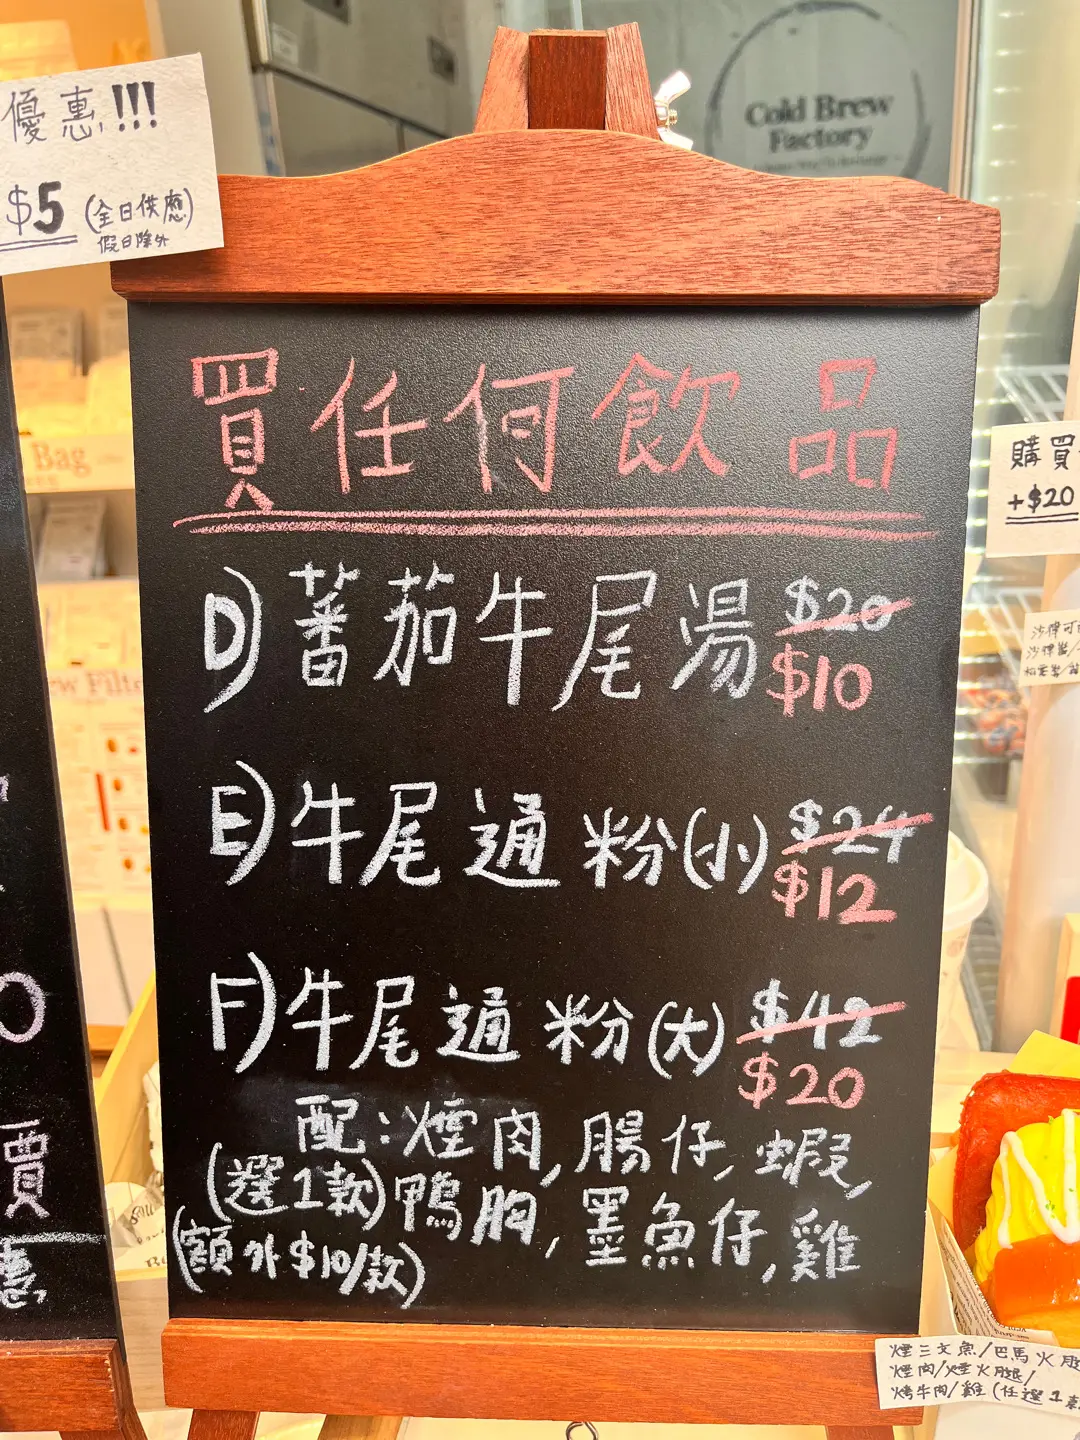 優惠!!!
$5 (全日供應)
假日除外
Cold Brew
Factory
買任何飲品
D) 蕃茄牛尾湯 $20
$10
E) 牛尾通粉(小) $24
$12
F) 牛尾通粉(大) $42
$20
配:煙肉,腸仔,蝦,
(選1款)鴨胸,墨魚仔,雞
(額外$10/款)
Bag
購買
+$20
沙律可
沙律醬/
0
價
惠
煙三文魚/巴馬火腿
煙肉/煙火腿/
烤牛肉/雞(任選1款